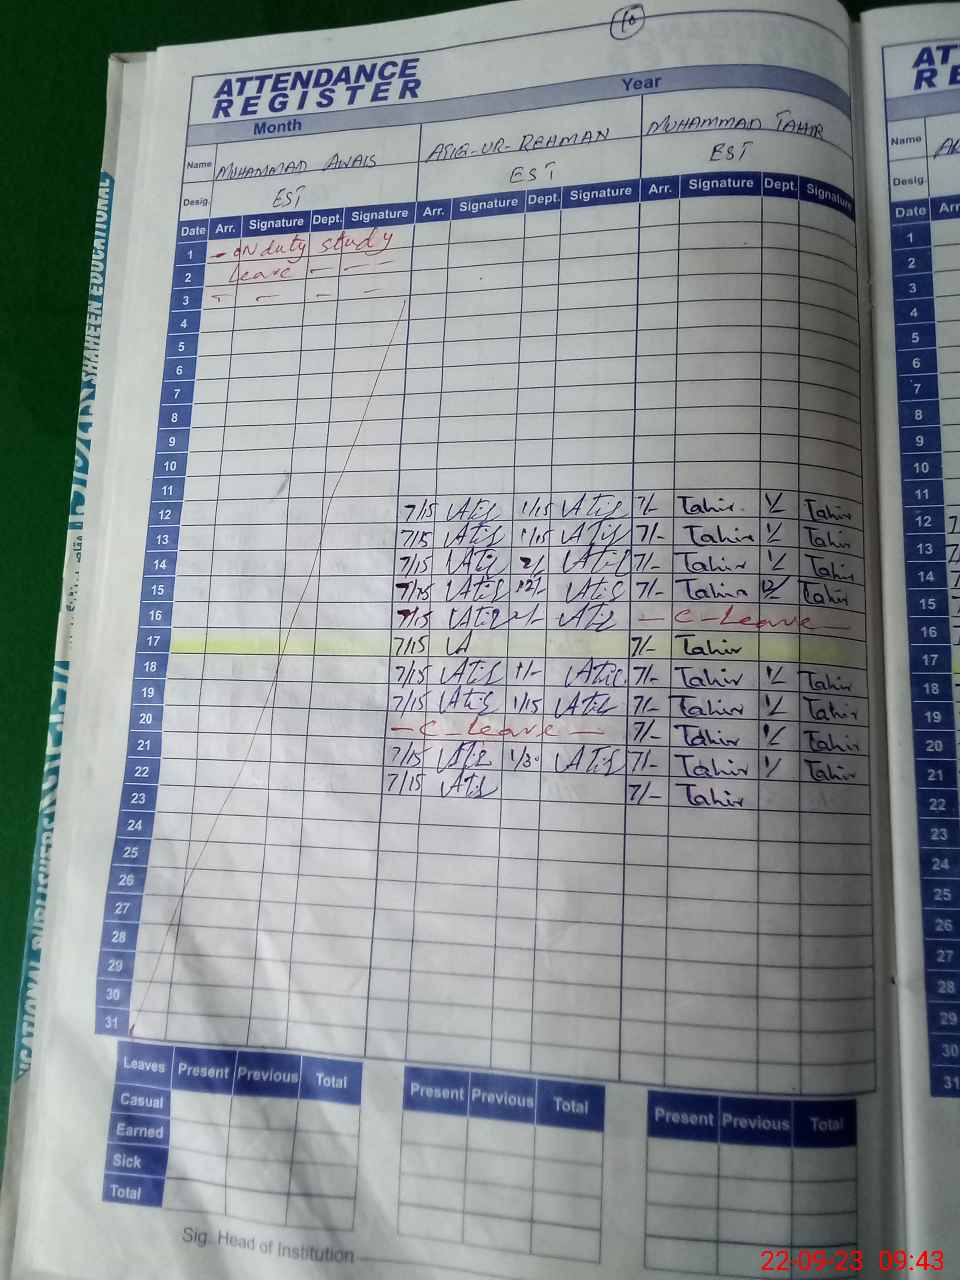 10
ATTENDANCE
REGISTER
Month Year
Name MUHAMMAD AWAIS ATIQ-UR-REHMAN MUHAMMAD TAHIR
Desig. EST EST EST
Date Arr. Signature Dept. Signature Arr. Signature Dept. Signature Arr. Signature Dept. Signature
1 - ON duty study
2 Leave - -
3 - - - -
4
5
6
7
8
9
10
11
12 7/15 Atiq 1/15 Atiq 7/- Tahir 1/ Tahir
13 7/15 Atiq 1/15 Atiq 7/- Tahir 1/ Tahir
14 7/15 Atiq 2/ Atiq 7/- Tahir 1/ Tahir
15 7/15 Atiq 12/- Atiq 7/- Tahir 12/ Tahir
16 7/15 Atiq Atiq - C-Leave -
17 7/15 A 7/- Tahir
18 7/15 Atiq 1/- Atiq 7/- Tahir 1/ Tahir
19 7/15 Atiq 1/15 Atiq 7/- Tahir 1/ Tahir
20 - C-Leave - 7/- Tahir 1/ Tahir
21 7/15 Atiq 1/30 Atiq 7/- Tahir 1/ Tahir
22 7/15 Atiq 7/- Tahir
23
24
25
26
27
28
29
30
31
Leaves Present Previous Total Present Previous Total Present Previous Total
Casual
Earned
Sick
Total
Sig. Head of Institution
AT
RE
Name
Desig.
Date Arr
1
2
3
4
5
6
7
8
9
10
11
12
13
14
15
16
17
18
19
20
21
22
23
24
25
26
27
28
29
30
31
SHAHEEN EDUCATIONAL
CATIONAL PUBLISHERS
22-09-23 09:43